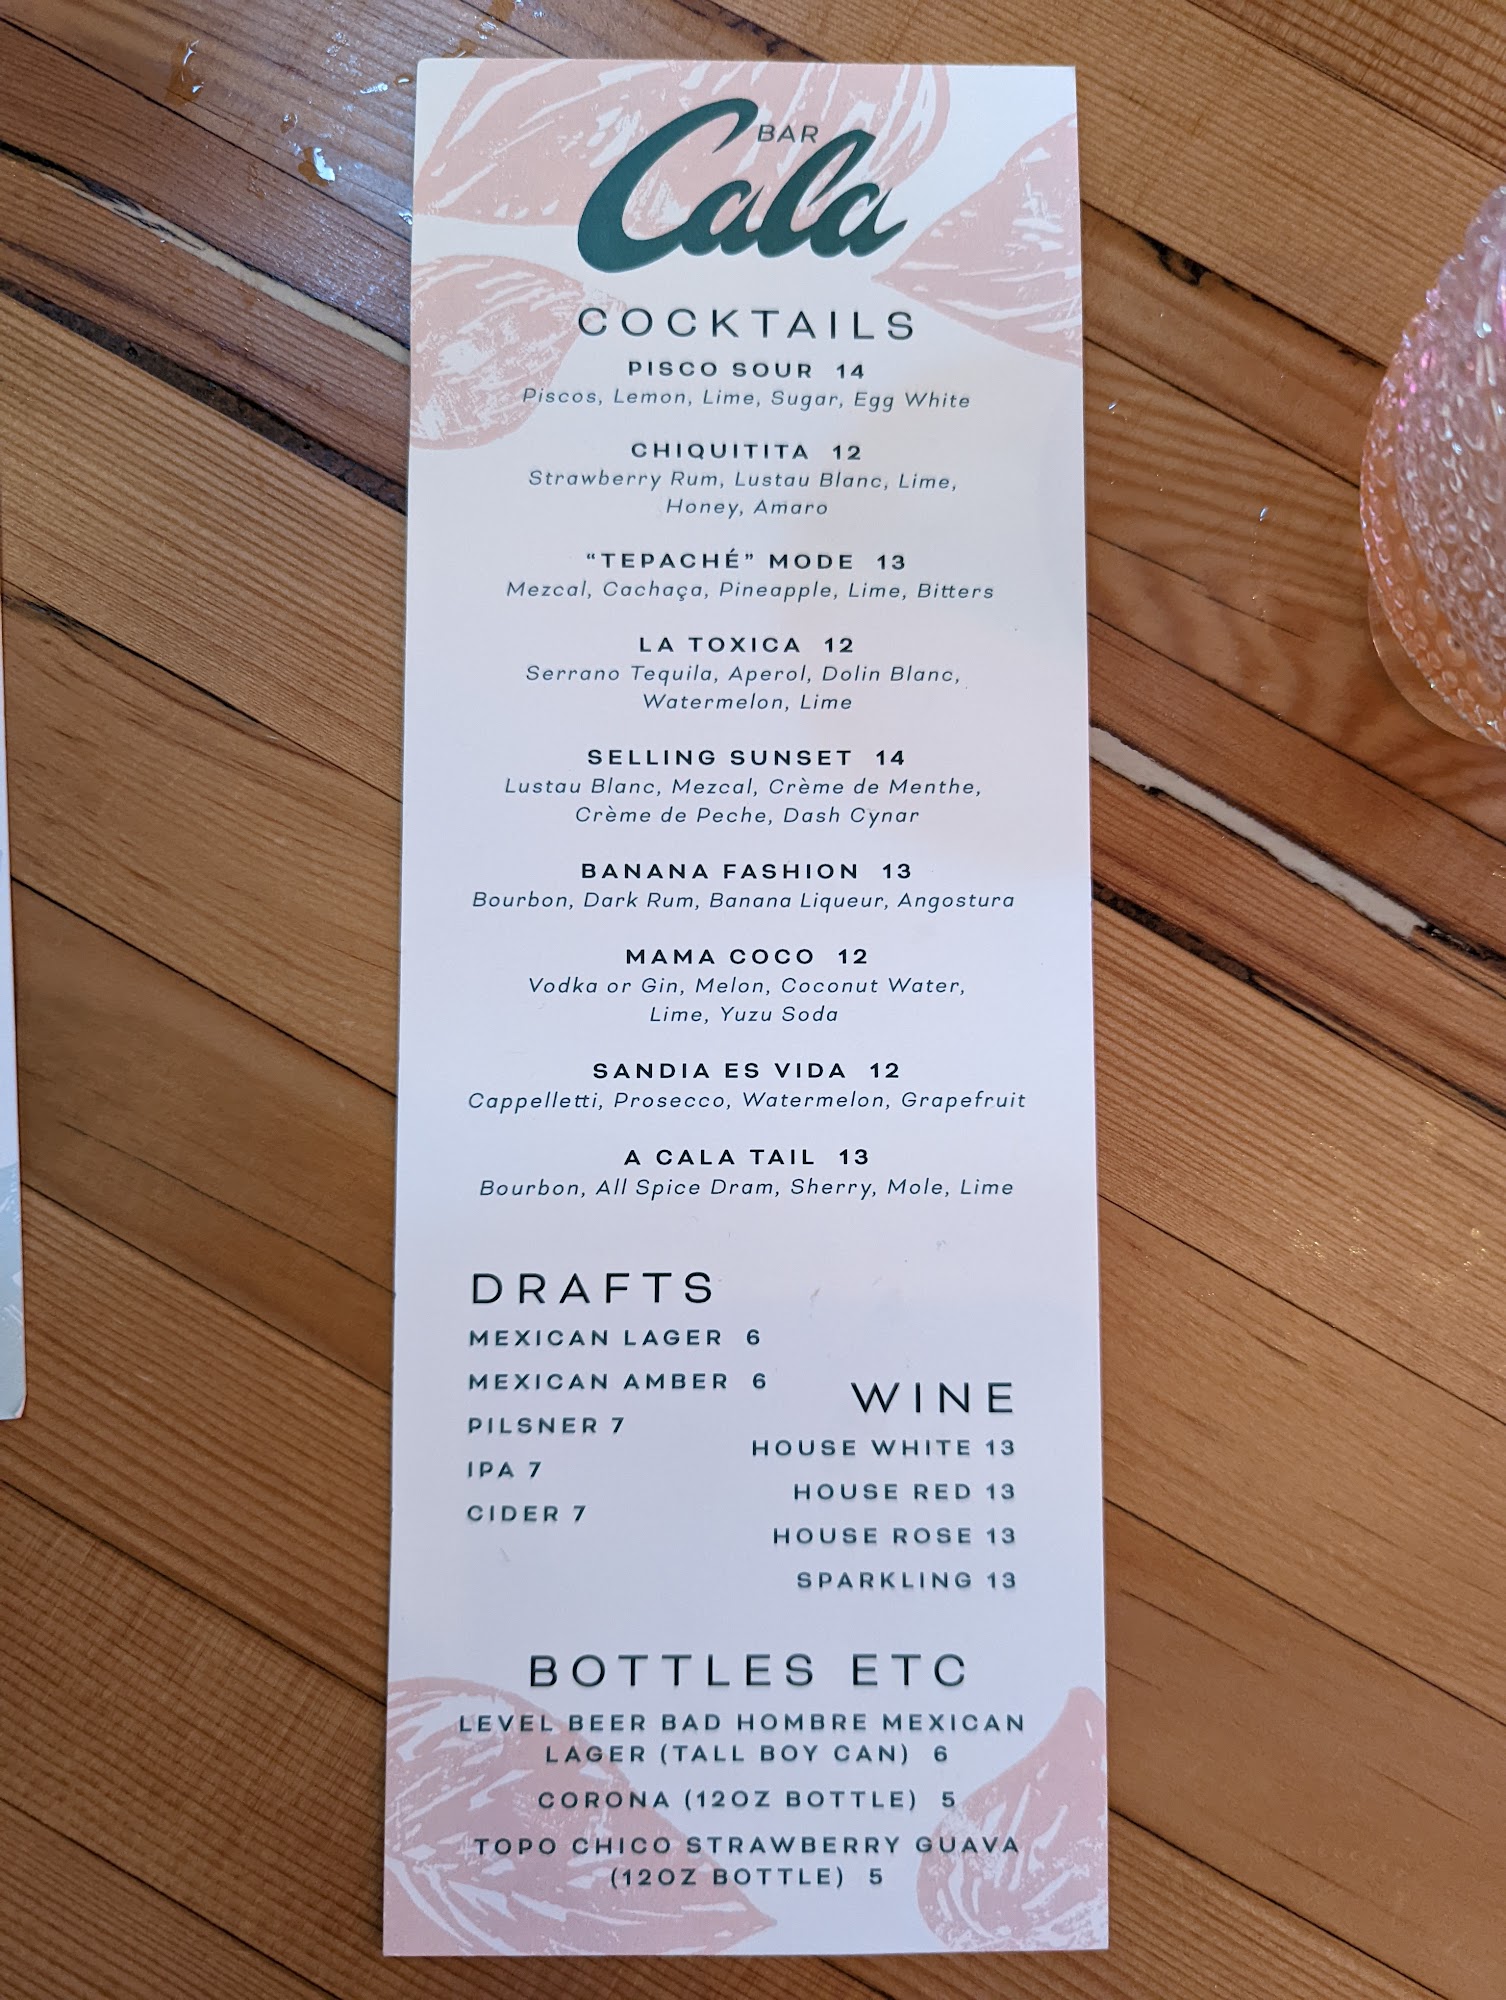 BAR
Cala
COCKTAILS
PISCO SOUR 14
Piscos, Lemon, Lime, Sugar, Egg White
CHIQUITITA 12
Strawberry Rum, Lustau Blanc, Lime,
Honey, Amaro
“TEPACHÉ” MODE 13
Mezcal, Cachaça, Pineapple, Lime, Bitters
LA TOXICA 12
Serrano Tequila, Aperol, Dolin Blanc,
Watermelon, Lime
SELLING SUNSET 14
Lustau Blanc, Mezcal, Crème de Menthe,
Crème de Peche, Dash Cynar
BANANA FASHION 13
Bourbon, Dark Rum, Banana Liqueur, Angostura
MAMA COCO 12
Vodka or Gin, Melon, Coconut Water,
Lime, Yuzu Soda
SANDIA ES VIDA 12
Cappelletti, Prosecco, Watermelon, Grapefruit
A CALA TAIL 13
Bourbon, All Spice Dram, Sherry, Mole, Lime
DRAFTS
MEXICAN LAGER 6
MEXICAN AMBER 6
PILSNER 7
IPA 7
CIDER 7
WINE
HOUSE WHITE 13
HOUSE RED 13
HOUSE ROSE 13
SPARKLING 13
BOTTLES ETC
LEVEL BEER BAD HOMBRE MEXICAN
LAGER (TALL BOY CAN) 6
CORONA (12OZ BOTTLE) 5
TOPO CHICO STRAWBERRY GUAVA
(12OZ BOTTLE) 5